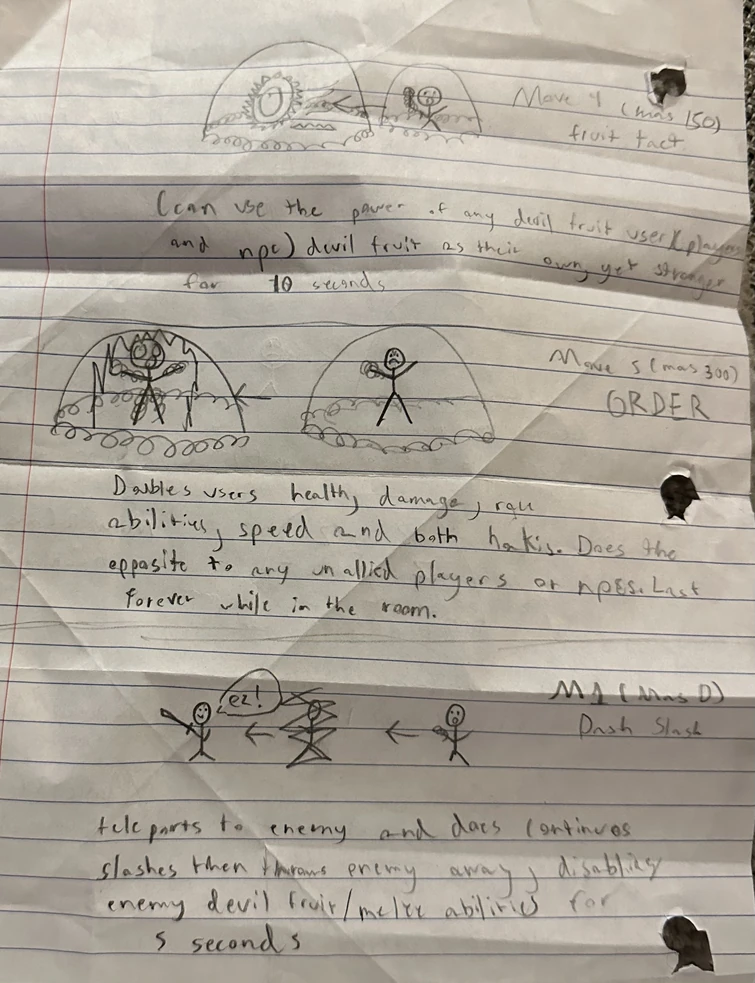 Move 4 (mas 150)
fruit tact
(can use the power of any devil fruit user (players
and npc) devil fruit as their own, yet stronger
for 10 seconds
Move 5 (mas 300)
ORDER
Doubles users health, damage,
abilities, speed and both hakis. Does the
oppasite to any unallied players or npcs. Last
forever while in the room.
ez!
M1 (Mas 0)
Dash Slash
teleparts to enemy and does continuos
slashes then throws enemy away, disabling
enemy devil fruit/ abilities for
5 seconds